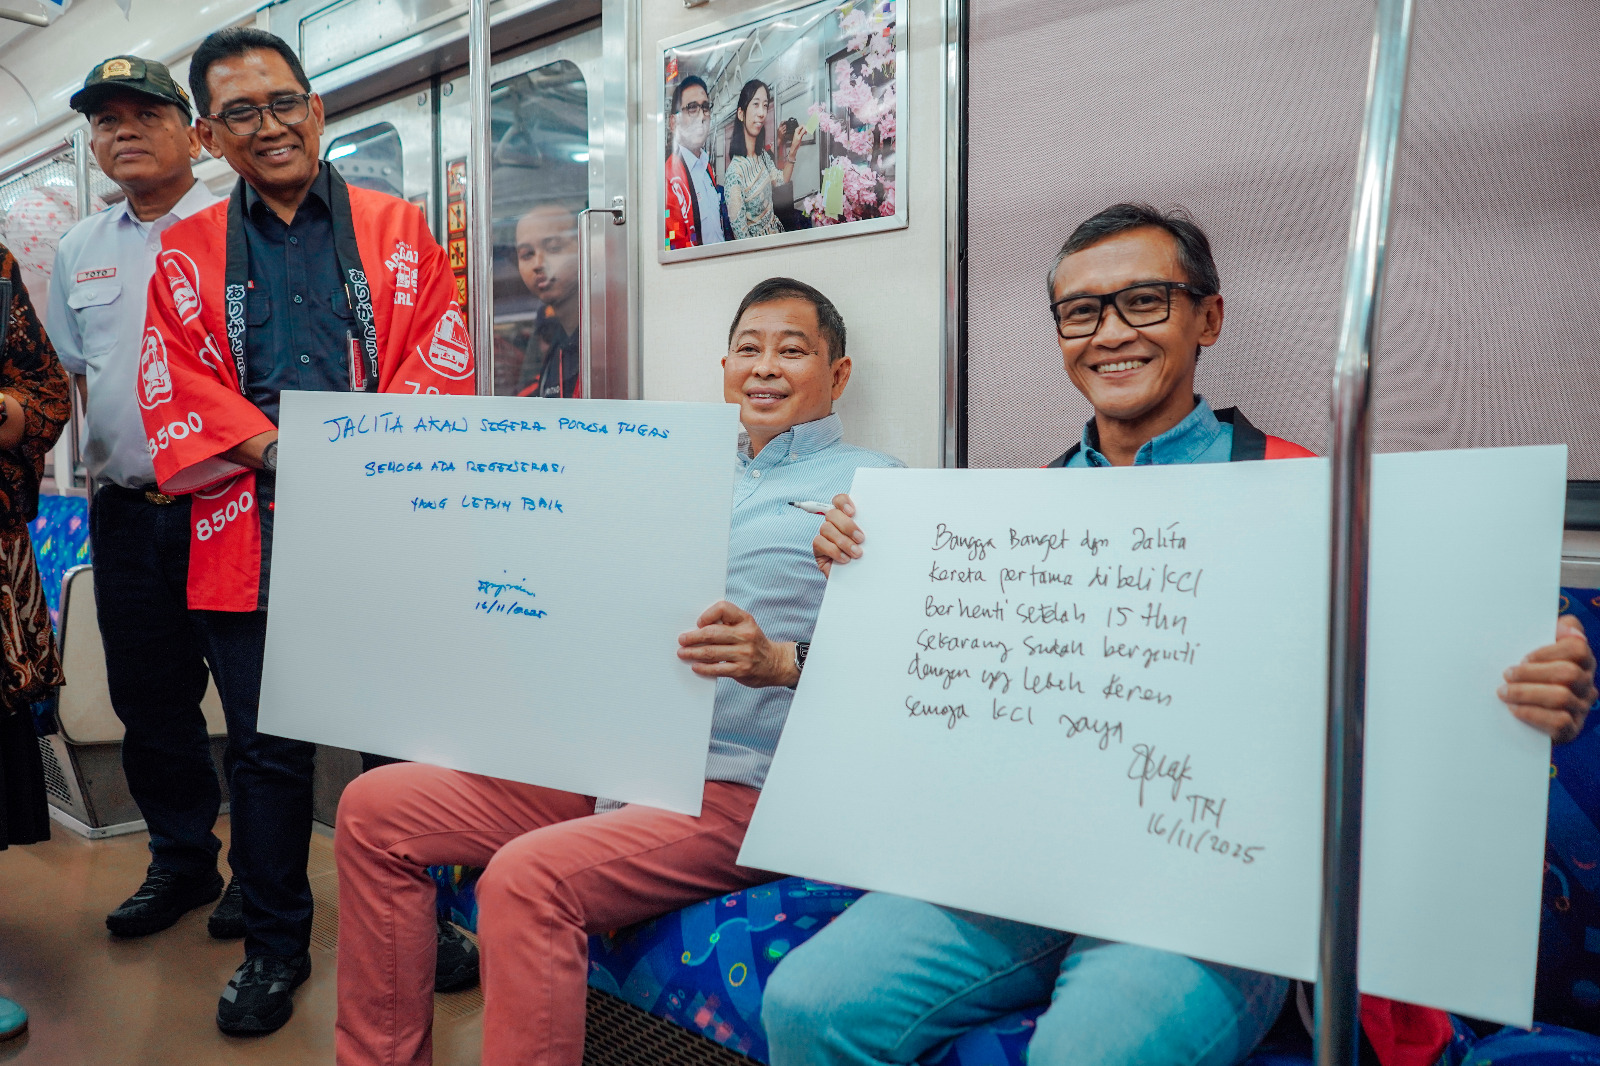 TOTO
8500
8500
KRL
JALITA AKAN SEGERA PURNA TUGAS
SEMOGA ADA REGENERASI
YANG LEBIH BAIK
16/11/2025
Bangga Banget dgn Jalita
Kereta pertama di beli KCI
Berhenti setelah 15 thn
sekarang sudah berganti
dengan yg lebih keren
semoga KCI Jaya
TRI
16/11/2025